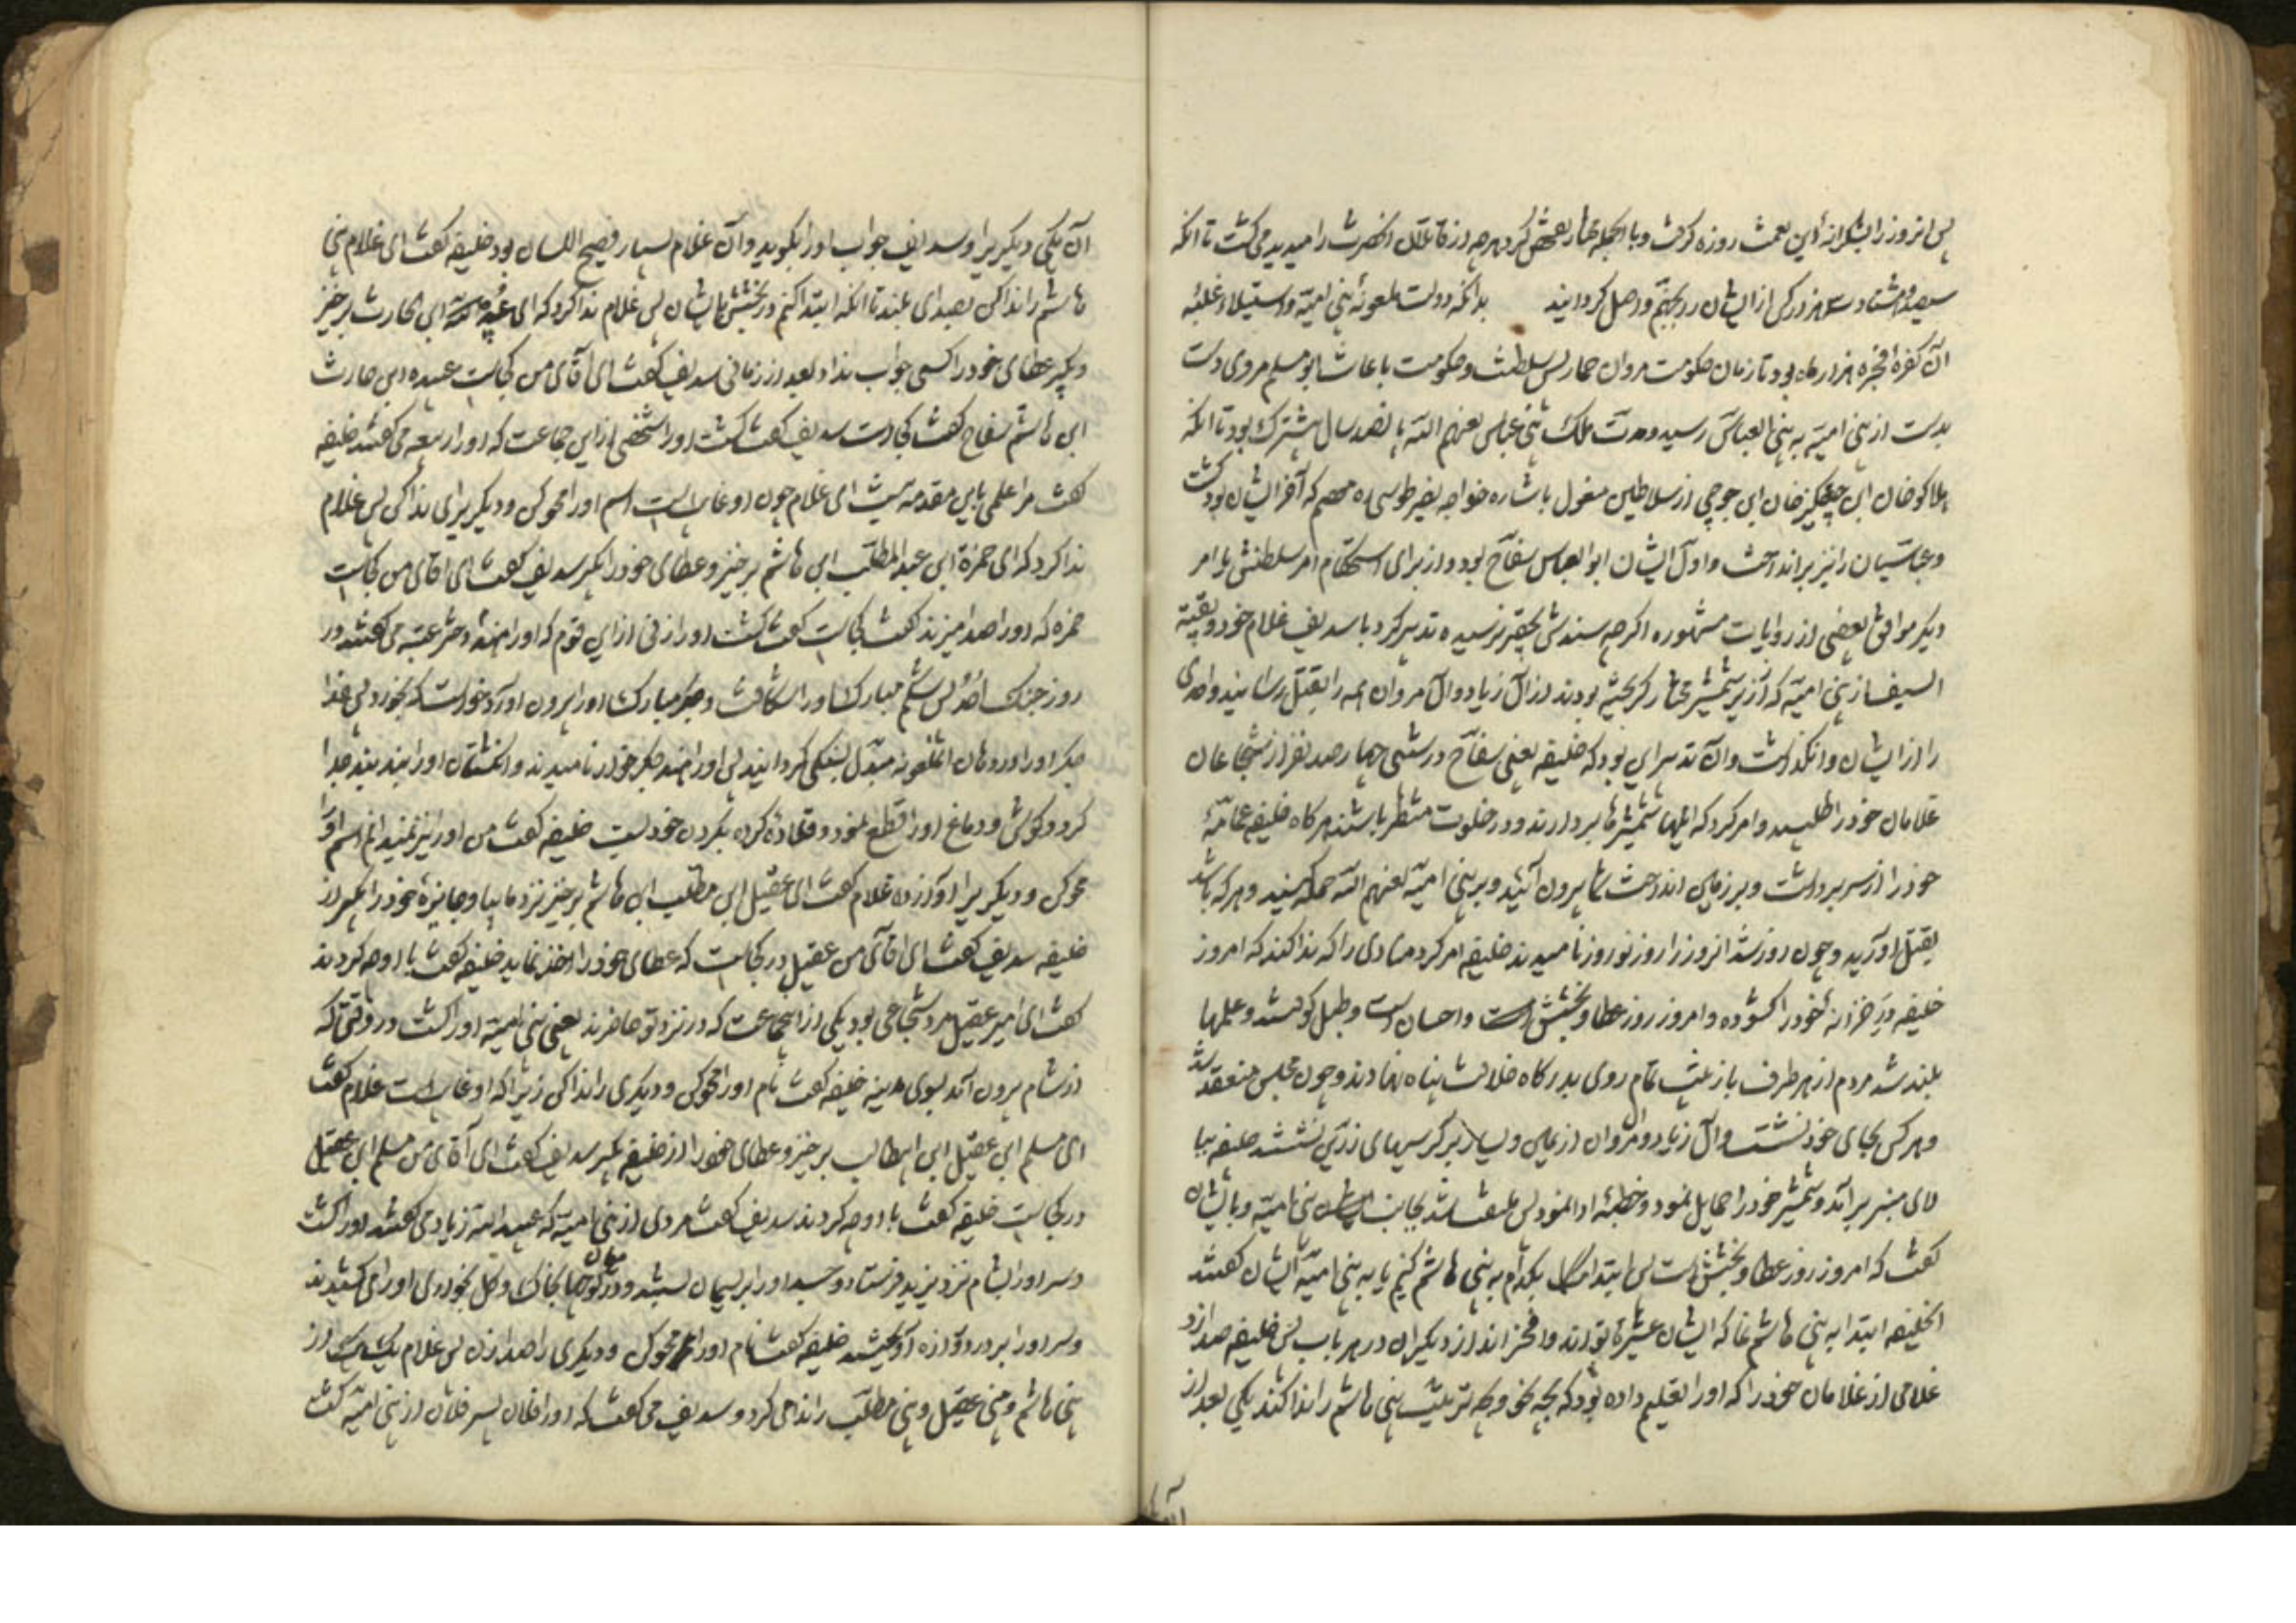 پس انروز را بشکرانهٔ این نعمت روزه گرفت و با الجمله مختار تفحص کرد هرچه از قاتلان انحضرت را میدید می کشت تا انکه
سیصد و هشتاد و سه هزار کس از ایشان را بجهنم واصل کردانید بدانکه دولت ملعونهٔ بنی امیّه و استیلا و غلبهٔ
ان کفرهٔ فجره هزار ماه بود تا زمان حکومت مروان حمار پس سلطنت و حکومت با عانت ابو مسلم مروی دست
بدست از بنی امیّه به بنی العباس رسید و مدت ملک بنی عباس لعنهم الله پانصد سال مشترک بود تا انکه
هلاکو خان ابن چنکیز خان ابن جوجی از سلاطین مغول باشاره خواجه نصیر طوسی معتصم که آخر ایشان بود کشت
و عباسیان را نیز برانداخت و اول ایشان ابو العباس سفاح بود و از برای استحکام امر سلطنتش با امر
دیکر موافق بعضی از روایات مشهوره اکرچه سندش بحقیر نرسیده تدبیر کرد با سدیف غلام خود و بقیّة
السیف از بنی امیّه که از زیر شمشیر مختار کریخته بودند از آل زیاد و آل مروان همه را بقتل رسانیند و احدی
را از ایشان وانکذاشت و ان تدبیر این بود که خلیفه یعنی سفاح در شبی چهار صد نفر از شجاعان
غلامان خود را طلبید و امر کرد که اینها شمشیرها بردارند و در خلوت منتظر باشند هرکاه خلیفه عمامهٔ
خود را از سر برداشت و بر زمین انداخت شما بیرون آئید و بر بنی امیّه لعنهم الله حمله کنید و هر که باشد
بقتل اورید و چون روز شد انروز را روز نوروز نامیدند خلیفه امر کرد منادی را که ندا کند که امروز
خلیفه در خزانهٔ خود را کشوده و امروز روز عطا و بخشش است و احسان است و طبل کوفتند و علمها
بلند شد مردم از هر طرف با زینت تمام روی بدرکاه خلافت پناه نهادند و چون مجلس منعقد شد
و هر کس بجای خود نشست و آل زیاد و آل مروان از یمین و یسار بر کرسیهای زرین نشستند خلیفه ببا
لای منبر برآمد و شمشیر خود را حمایل نمود و خطبهٔ ادا نمود پس ملتفت شد بجانب بنی امیّه و با ایشان
کفت که امروز روز عطا و بخشش است پس ابتدا بکدام به بنی هاشم کنیم یا به بنی امیّه ایشان کفتند
ایخلیفه ابتدا به بنی هاشم نما که ایشان عشیرهٔ تو اند و افخر اند از دیکران در هر باب پس خلیفه صدا زد
غلامی از غلامان خود را که او را تعلیم داده بود که بچه نحو و چه ترتیب بنی هاشم را ندا کند یکی بعد از
آن یکی دیکریرا و سدیف جواب او را بکوید و ان غلام بسیار فصیح اللسان بود خلیفه کفت ای غلام بنی
هاشم را ندا کن بصدای بلند تا انکه ابتدا کنم در بخشش بایشان پس غلام ندا کرد که ای عبیده ابن الحارث برخیز
و بکیر عطای خود را کسی جواب نداد بعد از زمانی سدیف کفت ای آقای من کجاست عبیده ابن حارث
ابن هاشم سفاح کفت کجاست سدیف کفت کشت او را شخصی از این جماعت که او را ربیعه می کفتند خلیفه
کفت مرا علمی باین مقدمه نیست ای غلام چون او غایب است اسم او را محو کن و دیکریرا ندا کن پس غلام
ندا کرد که ای حمزة ابن عبد المطلب ابن هاشم برخیز و عطای خود را بکیر سدیف کفت ای اقای من کجاست
حمزه که او را صدا میزند کفت کجاست کفت کشت او را زنی از این قوم که او را هند دختر عتبه می کفتند در
روز جنک اُحُد پس شکم مبارک او را شکافت و جکر مبارک او را بیرون اورد خواست که بخورد پس خدا
جکر او را در دهان انملعونه مبدّل بسنکی کردانید پس او را هند جکر خوار نامیدند و انکشتان او را بند بند جدا
کرد و کوش و دماغ او را قطع نمود و قلاده کرده بکردن خود بست خلیفه کفت من او را نیز نمیدانم اسم او را
محو کن و دیکریرا اواز ده غلام کفت ای عقیل ابن مطلب ابن هاشم برخیز نزد ما بیا و جایزهٔ خود را بکیر از
خلیفه سدیف کفت ای اقای من عقیل در کجاست که عطای خود را اخذ نماید خلیفه کفت با او چه کردند
کفت ای امیر عقیل مرد شجاعی بود یکی از اینجماعت که در نزد تو حاضرند یعنی بنی امیّه او را کشت در وقتی که
از شام بیرون آمد بسوی مدینه خلیفه کفت نام او را محو کن و دیکری را ندا کن زیرا که او غایب است غلام کفت
ای مسلم ابن عقیل ابن ابیطالب برخیز و عطای خود را از خلیفه بکیر سدیف کفت ای آقای من مسلم ابن عقیل
در کجاست خلیفه کفت با او چه کردند سدیف کفت مردی از بنی امیّه که عبید الله زیاد می کفتند او را کشت
و سر او را بشام نزد یزید فرستاد و جسد او را بریسمان بستند و در میان کوچها بخاک و کل بخواری او را می کشیدند
و سر او را بر دروازه آویختند خلیفه کفت نام او را محو کن و دیکری را صدا زن پس غلام یک یک از
بنی هاشم و بنی عقیل و بنی مطلب را ندا می کرد و سدیف می کفت که او را فلان پسر فلان از بنی امیّه کشت